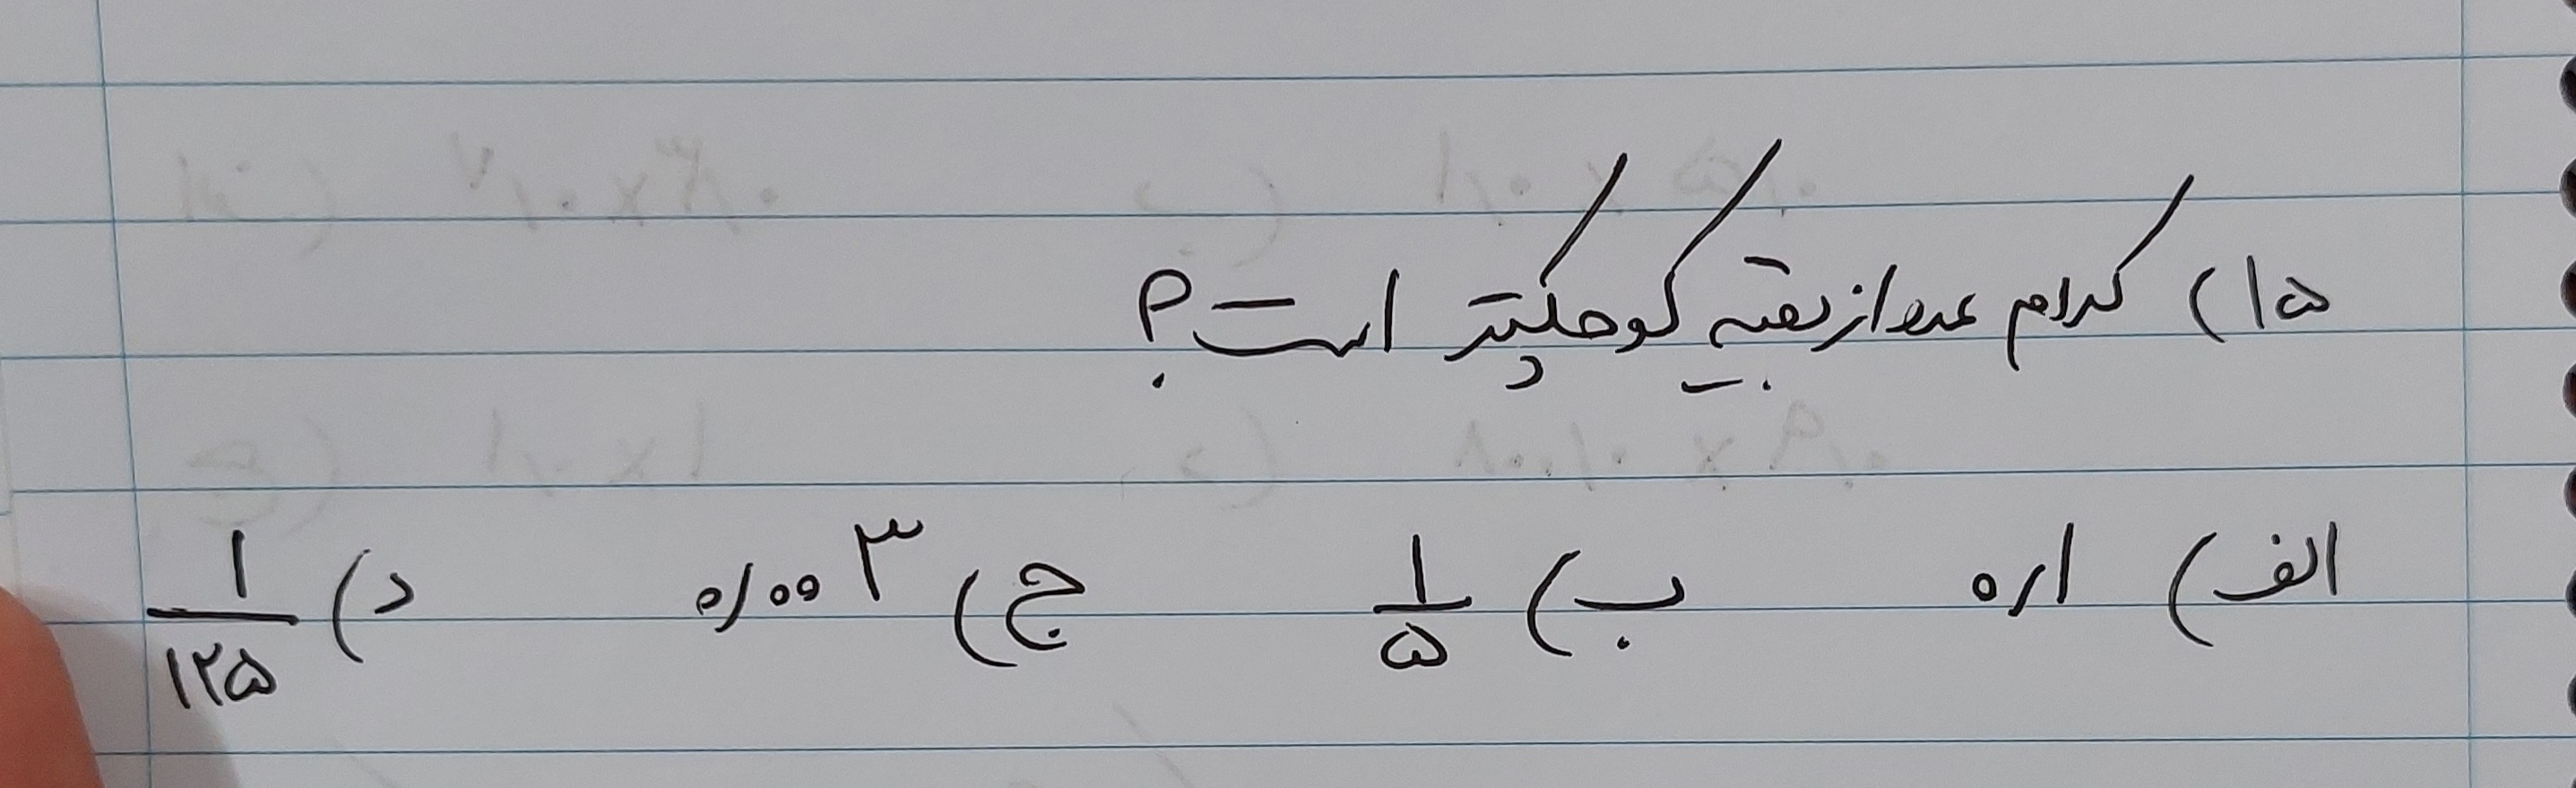 ۱۵) کدام عدد از بقیه کوچکتر است؟
الف) ۰/۱ ب) ۱/۵ ج) ۰/۰۰۳ د) ۱/۱۲۵